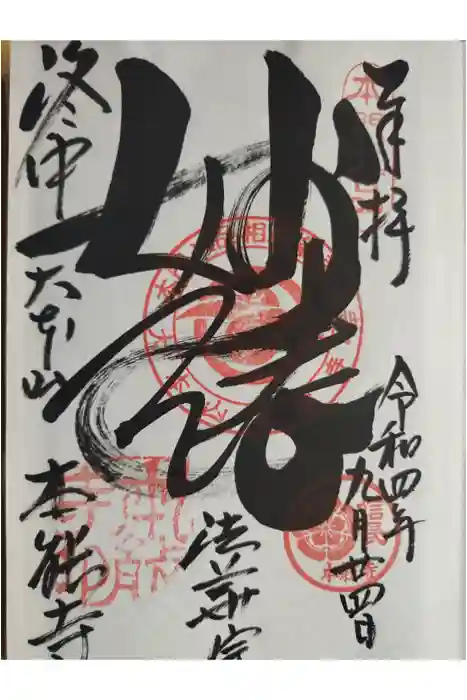 奉拝
令和四年
九月廿四日
妙法
法華宗
洛中
大本山
本能寺